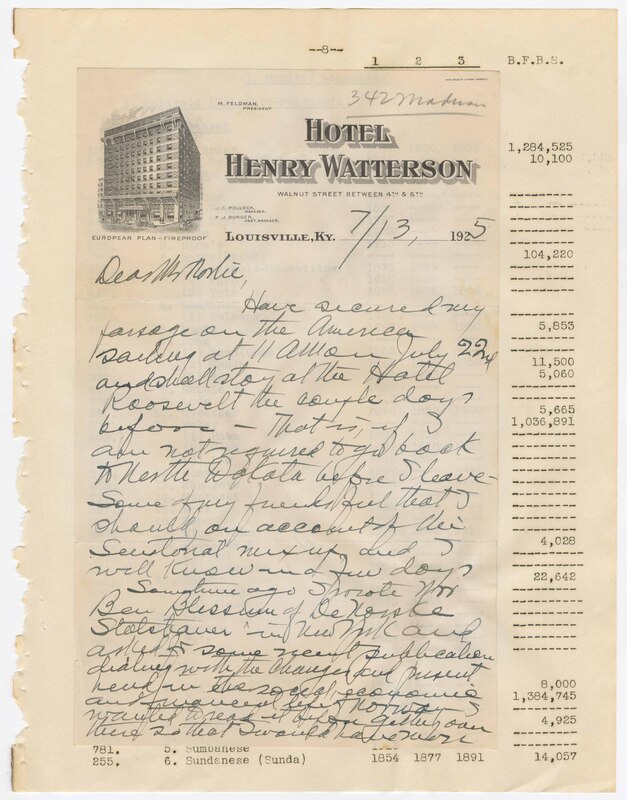 --8--
1 2 3 B.F.B.S.
342 Madison
M. FELDMAN,
PRESIDENT
HOTEL
HENRY WATTERSON
WALNUT STREET BETWEEN 4TH & 5TH
J. C. POLLOCK,
MANAGER.
F. J. BURGER,
ASST. MANAGER.
EUROPEAN PLAN - FIREPROOF
LOUISVILLE, KY. 7/13, 1925
Dear Mr
Have secured my
passage on the America
sailing at 11 AM on July 22d
and shall stay at the Hotel
Roosevelt the couple days
before - That is, if I
am not required to go back
to North Dakota before I leave -
Some of my friends feel that I
should, on account of the
Senatorial mixup and I
will know in a few days
Sometime ago I wrote Mr
Ben Blessum of De Norske
Statsbaner in New York and
asked for some recent publication
dealing with the changes and present
trend in the social, economic
and financial Norway - I
wanted to read it before getting over
there so that I would have
1,284,525
10,100
104,220
5,853
11,500
5,060
5,665
1,036,891
4,028
22,642
8,000
1,384,745
4,925
781. 5. Sumbanese
255. 6. Sundanese (Sunda) 1854 1877 1891 14,057